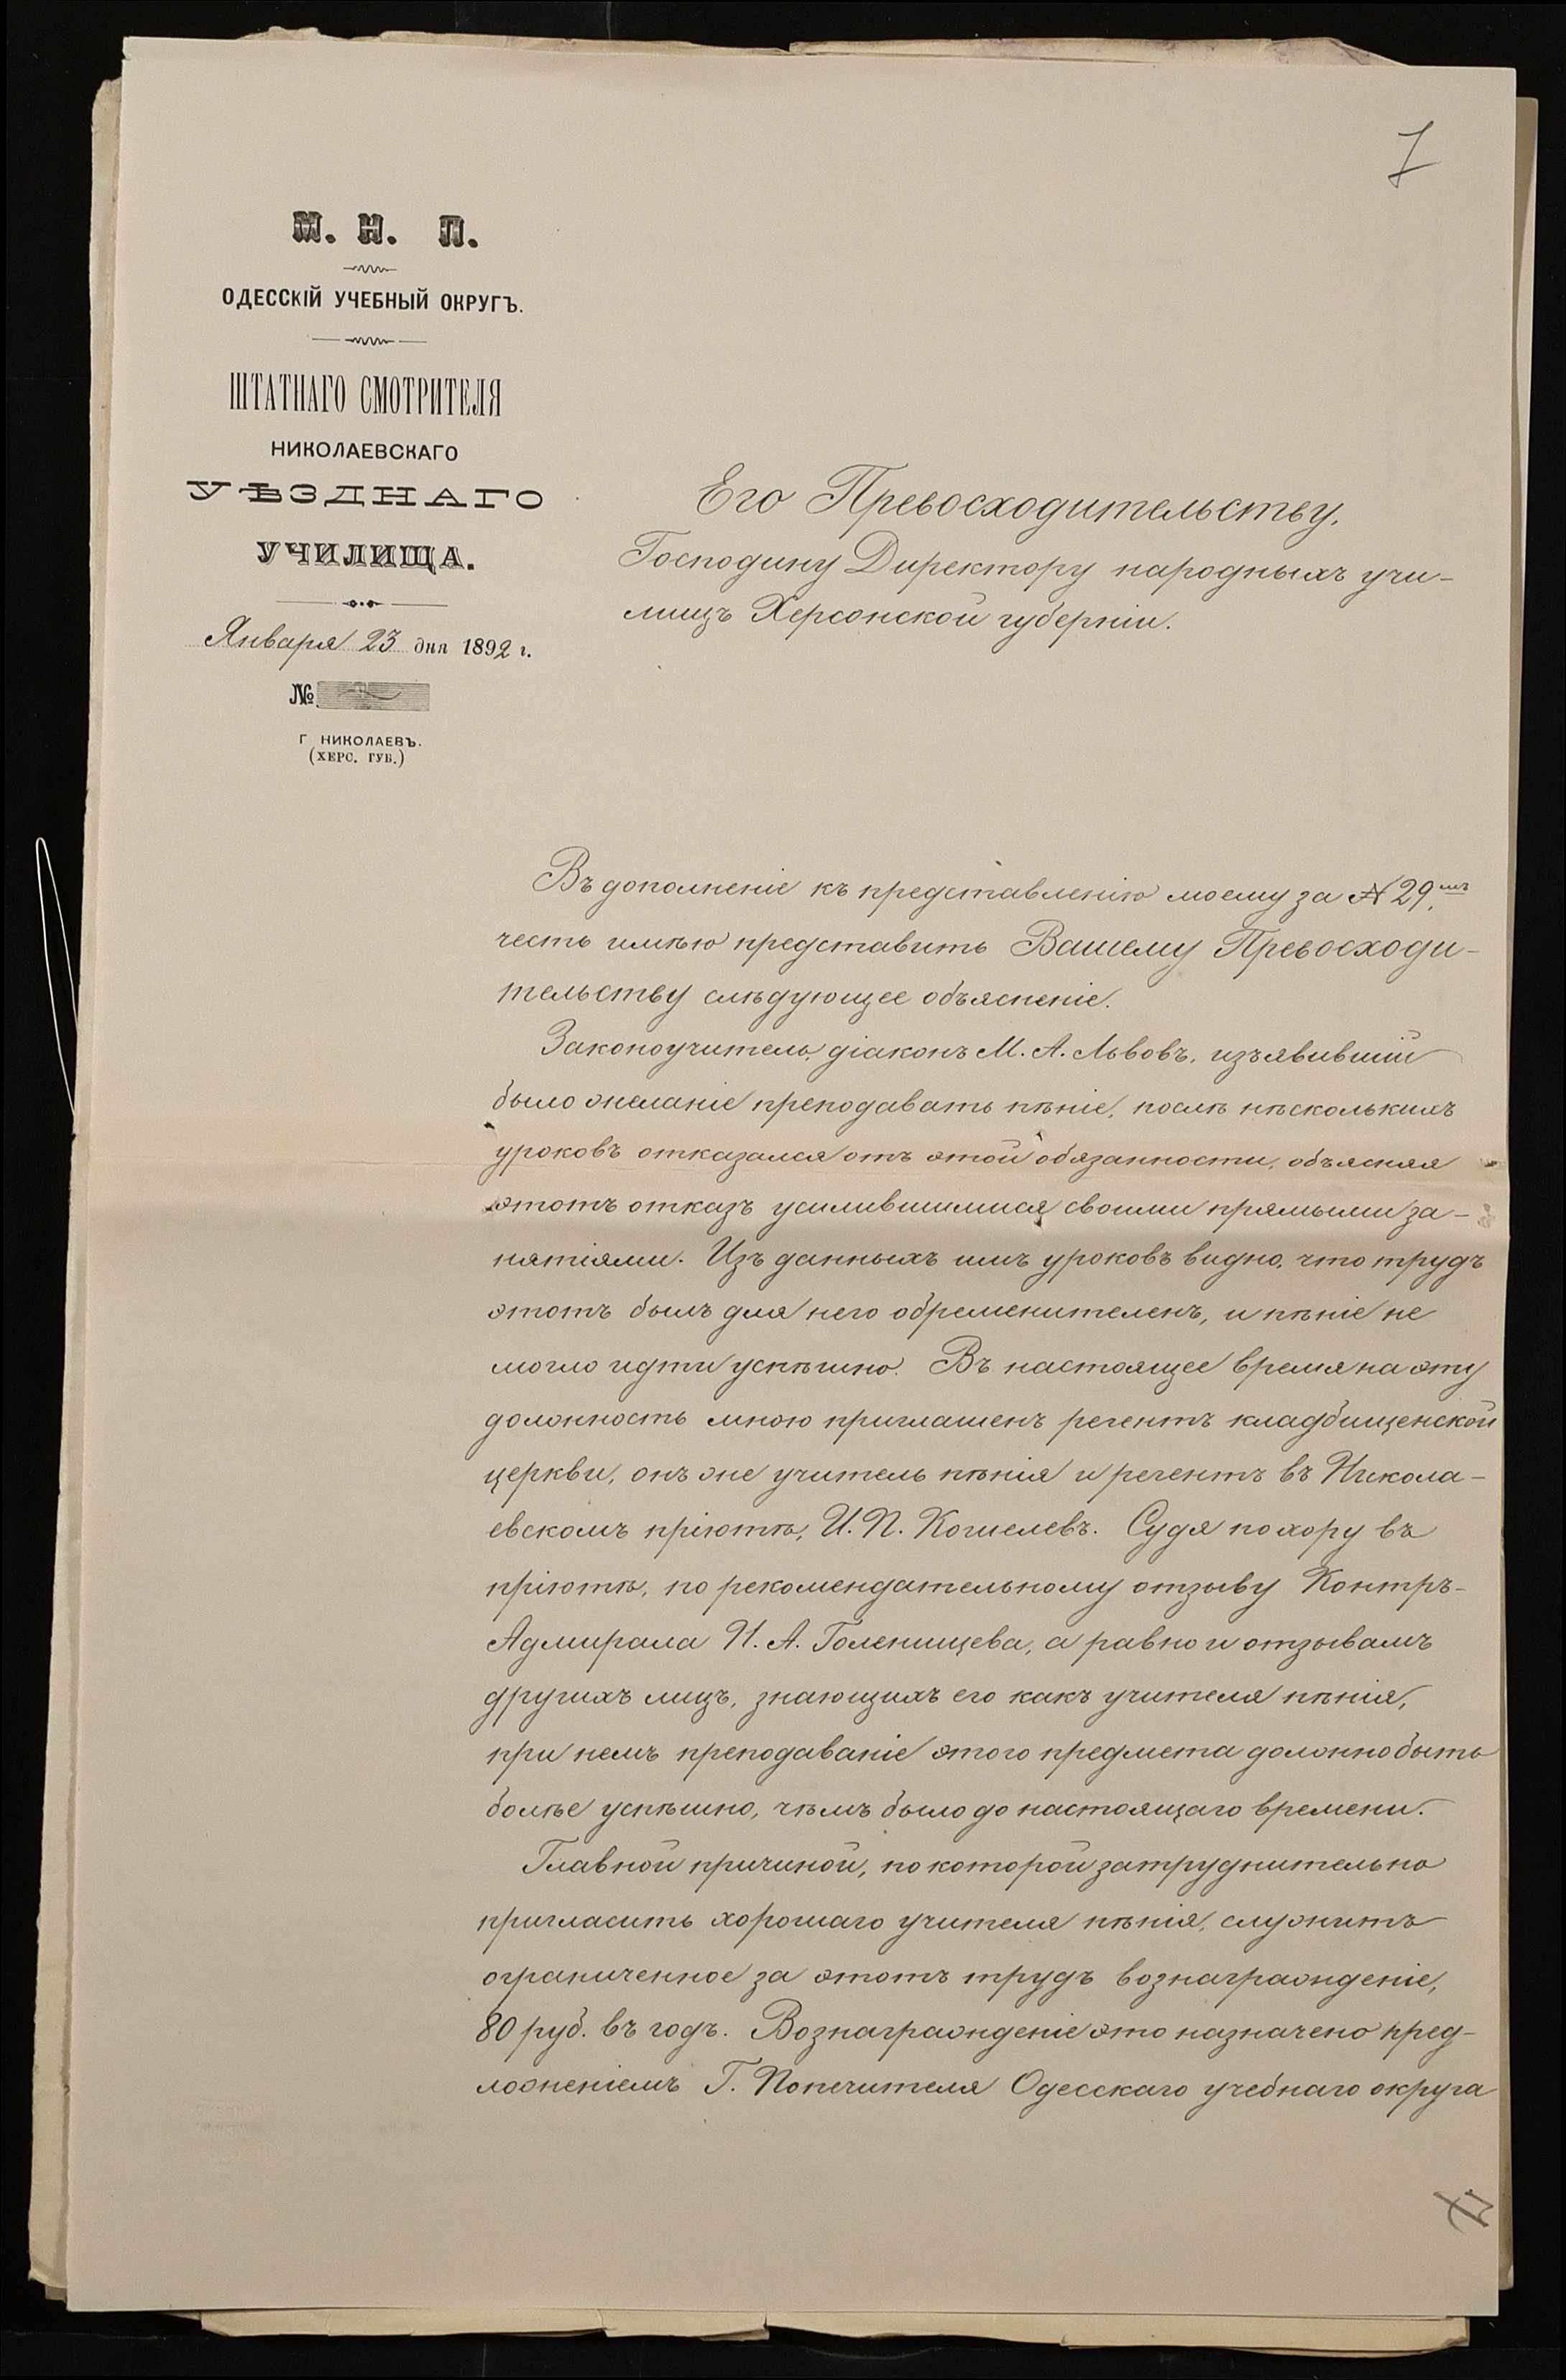 7
М. Н. П.
ОДЕССКІЙ УЧЕБНЫЙ ОКРУГЪ.
ШТАТНАГО СМОТРИТЕЛЯ
НИКОЛАЕВСКАГО
УѢЗДНАГО
УЧИЛИЩА.
Января 23 дня 1892 г.
№
Г НИКОЛАЕВЪ.
(ХЕРС. ГУБ.)
Его Превосходительству,
Господину Директору народныхъ учи-
лищъ Херсонской губерніи.
Въ дополненіе къ представленію моему за № 29.мъ
честь имѣю представить Вашему Превосходи-
тельству слѣдующее объясненіе.
Законоучитель, діаконъ М. А. Львовъ, изъявившій
было желаніе преподавать пѣніе, послѣ нѣсколькихъ
уроковъ отказался отъ этой обязанности, объясняя
этотъ отказъ усилившимися своими прямыми за-
нятіями. Изъ данныхъ имъ уроковъ видно, что трудъ
этотъ былъ для него обременителенъ, и пѣніе не
могло идти успѣшно. Въ настоящее время на эту
должность мною приглашенъ регентъ кладбищенской
церкви, онъ же учитель пѣнія и регентъ въ Никола-
евскомъ пріютѣ, И. П. Кошелевъ. Судя по хору въ
пріютѣ, по рекомендательному отзыву Контръ-
Адмирала И. А. Голенищева, а равно и отзывамъ
другихъ лицъ, знающихъ его какъ учителя пѣнія,
при немъ преподаваніе этого предмета должно быть
болѣе успѣшно, чѣмъ было до настоящаго времени.
Главной причиной, по которой затруднительно
пригласить хорошаго учителя пѣнія, служитъ
ограниченное за этотъ трудъ вознагражденіе,
80 руб. въ годъ. Вознагражденіе это назначено пред-
ложеніемъ Г. Попечителя Одесскаго учебнаго округа